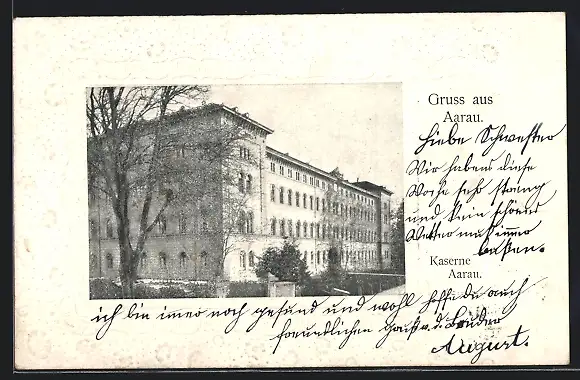 Gruss aus
Aarau.
Liebe Schwester
Wir haben diese
Woche sehr streng
und kein schönes
Wetter
Kaserne
Aarau.
ich bin imer noch gesund und wohl hoffe du auch
freundlichen Gruss v. d. Bruder
August.